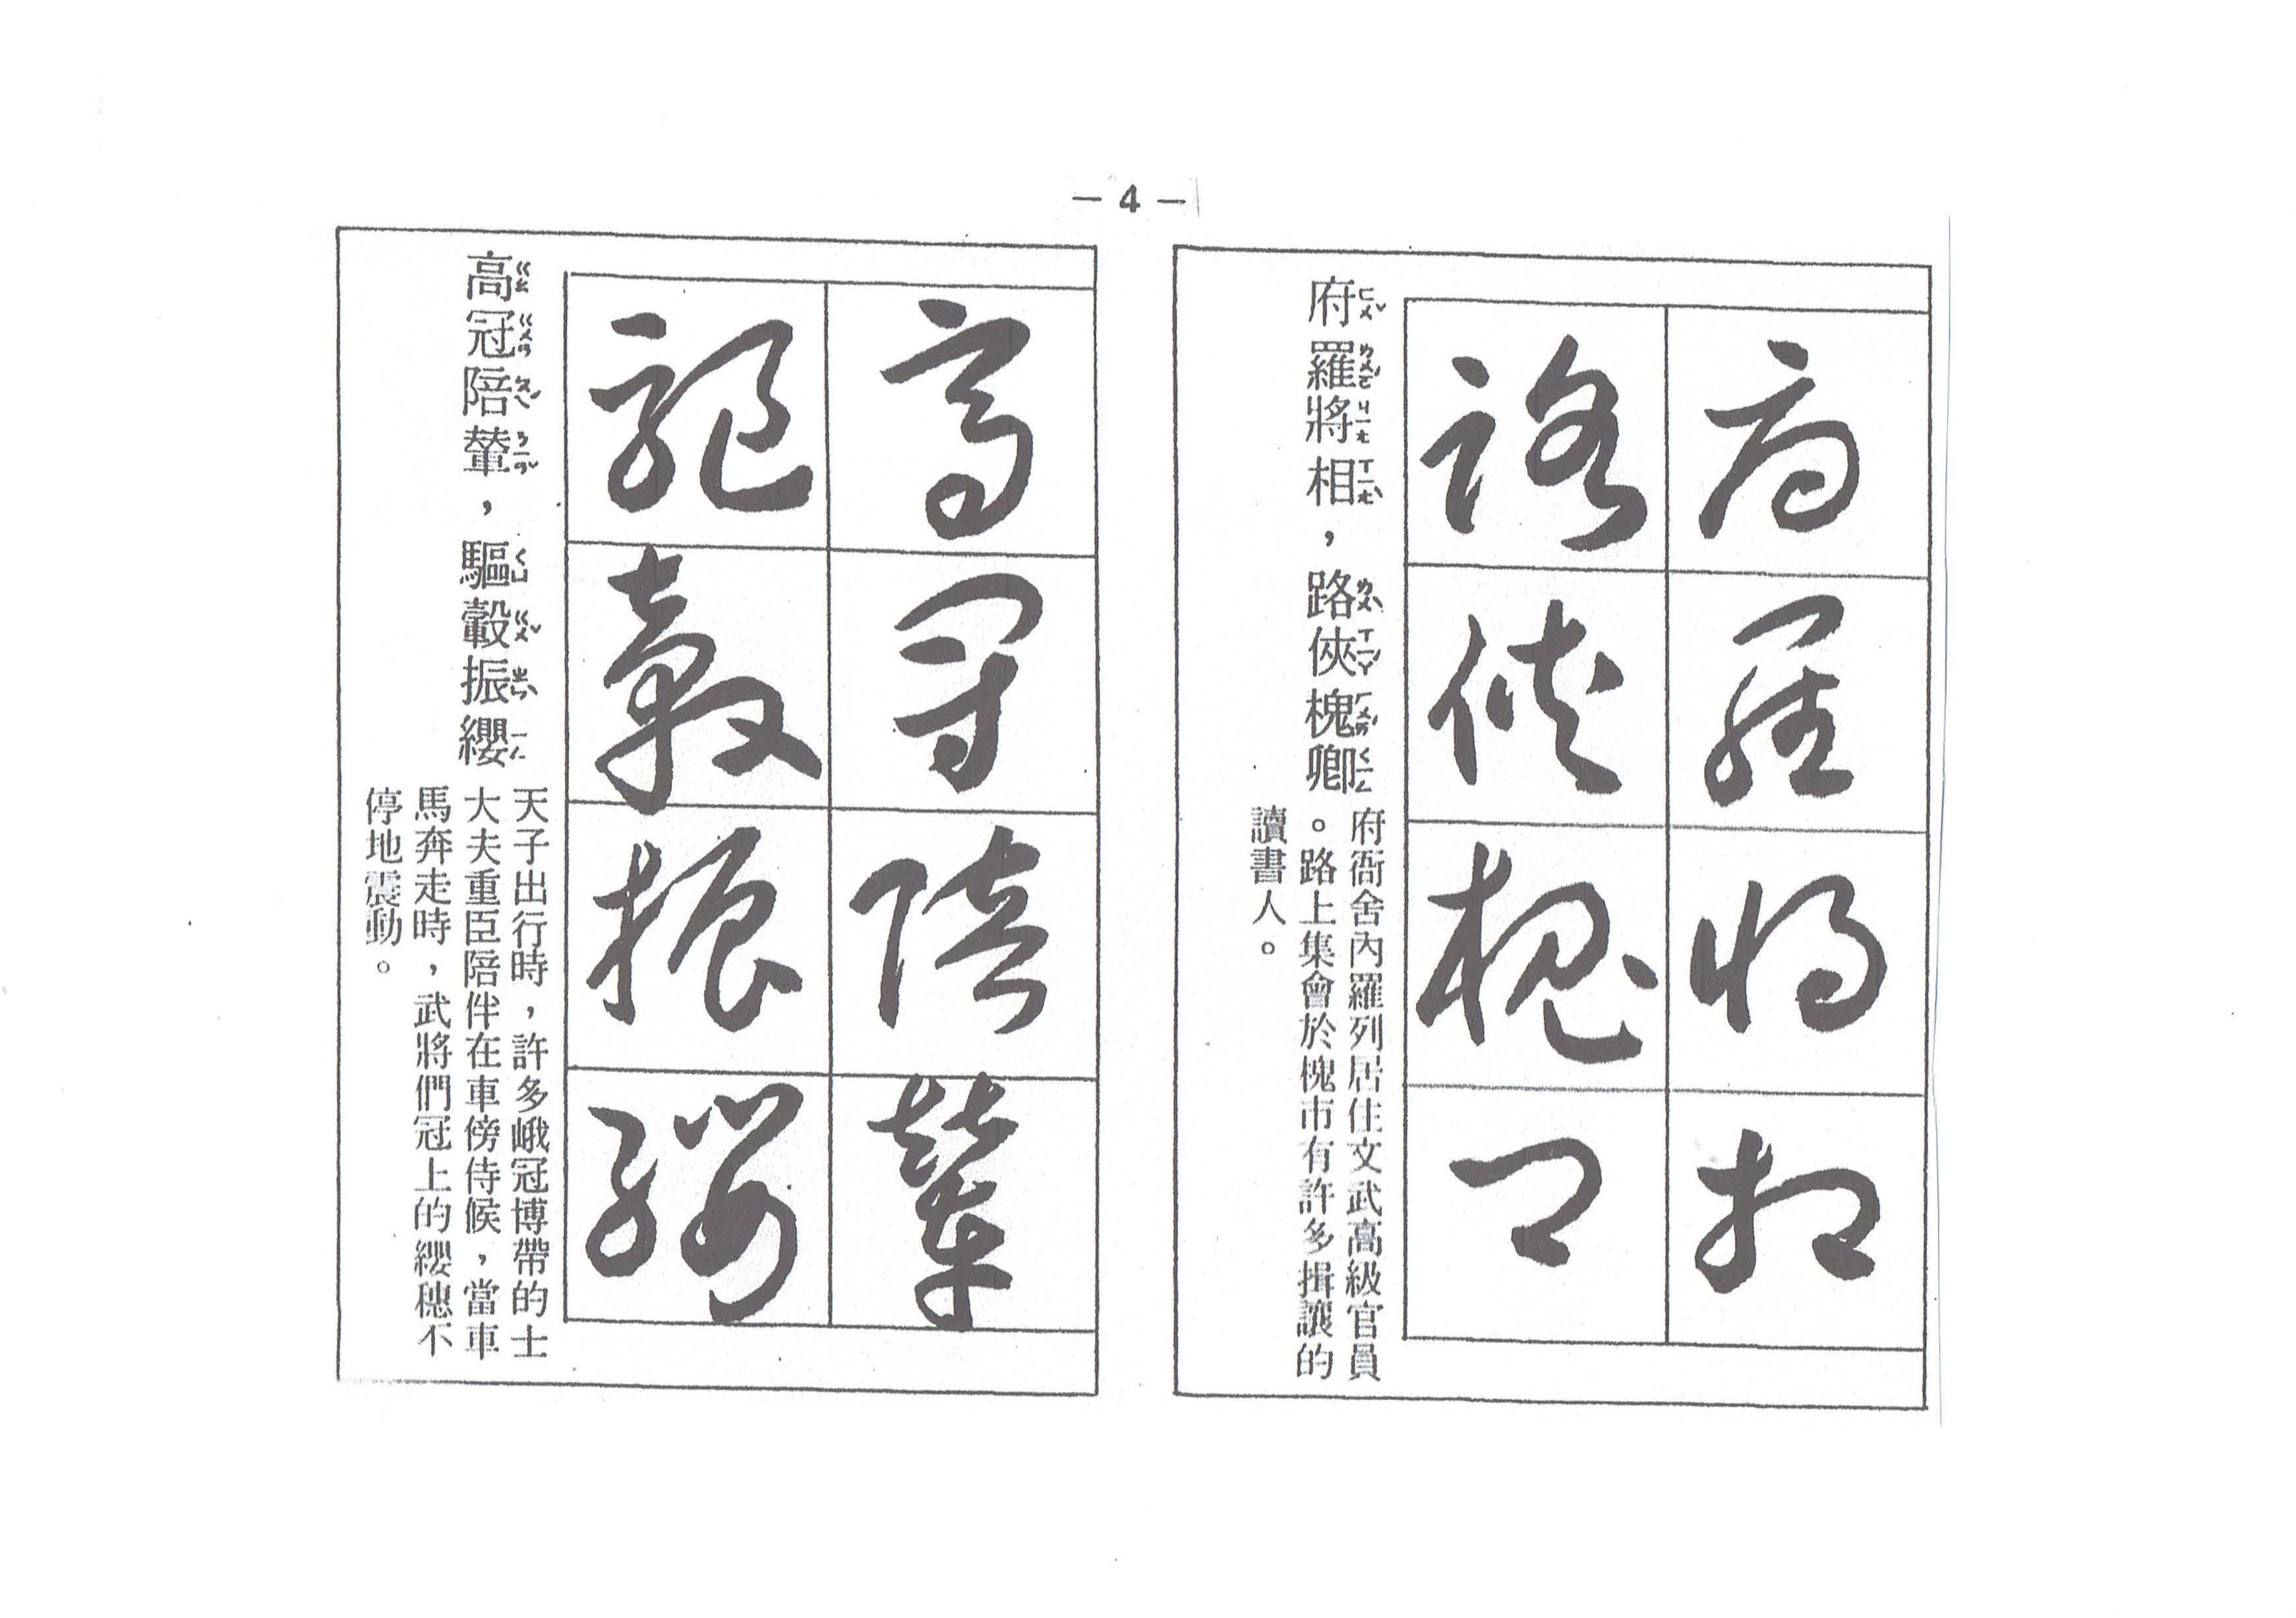 — 4 —
府羅將相
路俠槐卿
府ㄈㄨˇ羅ㄌㄨㄛˊ將ㄐㄧㄤ相ㄒㄧㄤˋ，路ㄌㄨˋ俠ㄒㄧㄚˊ槐ㄏㄨㄞˊ卿ㄑㄧㄥ
府衙舍內羅列居住文武高級官員
。路上集會於槐市有許多揖讓的
讀書人。
高冠陪輦
驅轂振纓
高ㄍㄠ冠ㄍㄨㄢ陪ㄆㄟˊ輦ㄋㄧㄢˇ，驅ㄑㄩ轂ㄍㄨˇ振ㄓㄣˋ纓ㄧㄥ
天子出行時，許多峨冠博帶的士
大夫重臣陪伴在車傍侍候，當車
馬奔走時，武將們冠上的纓穗不
停地震動。